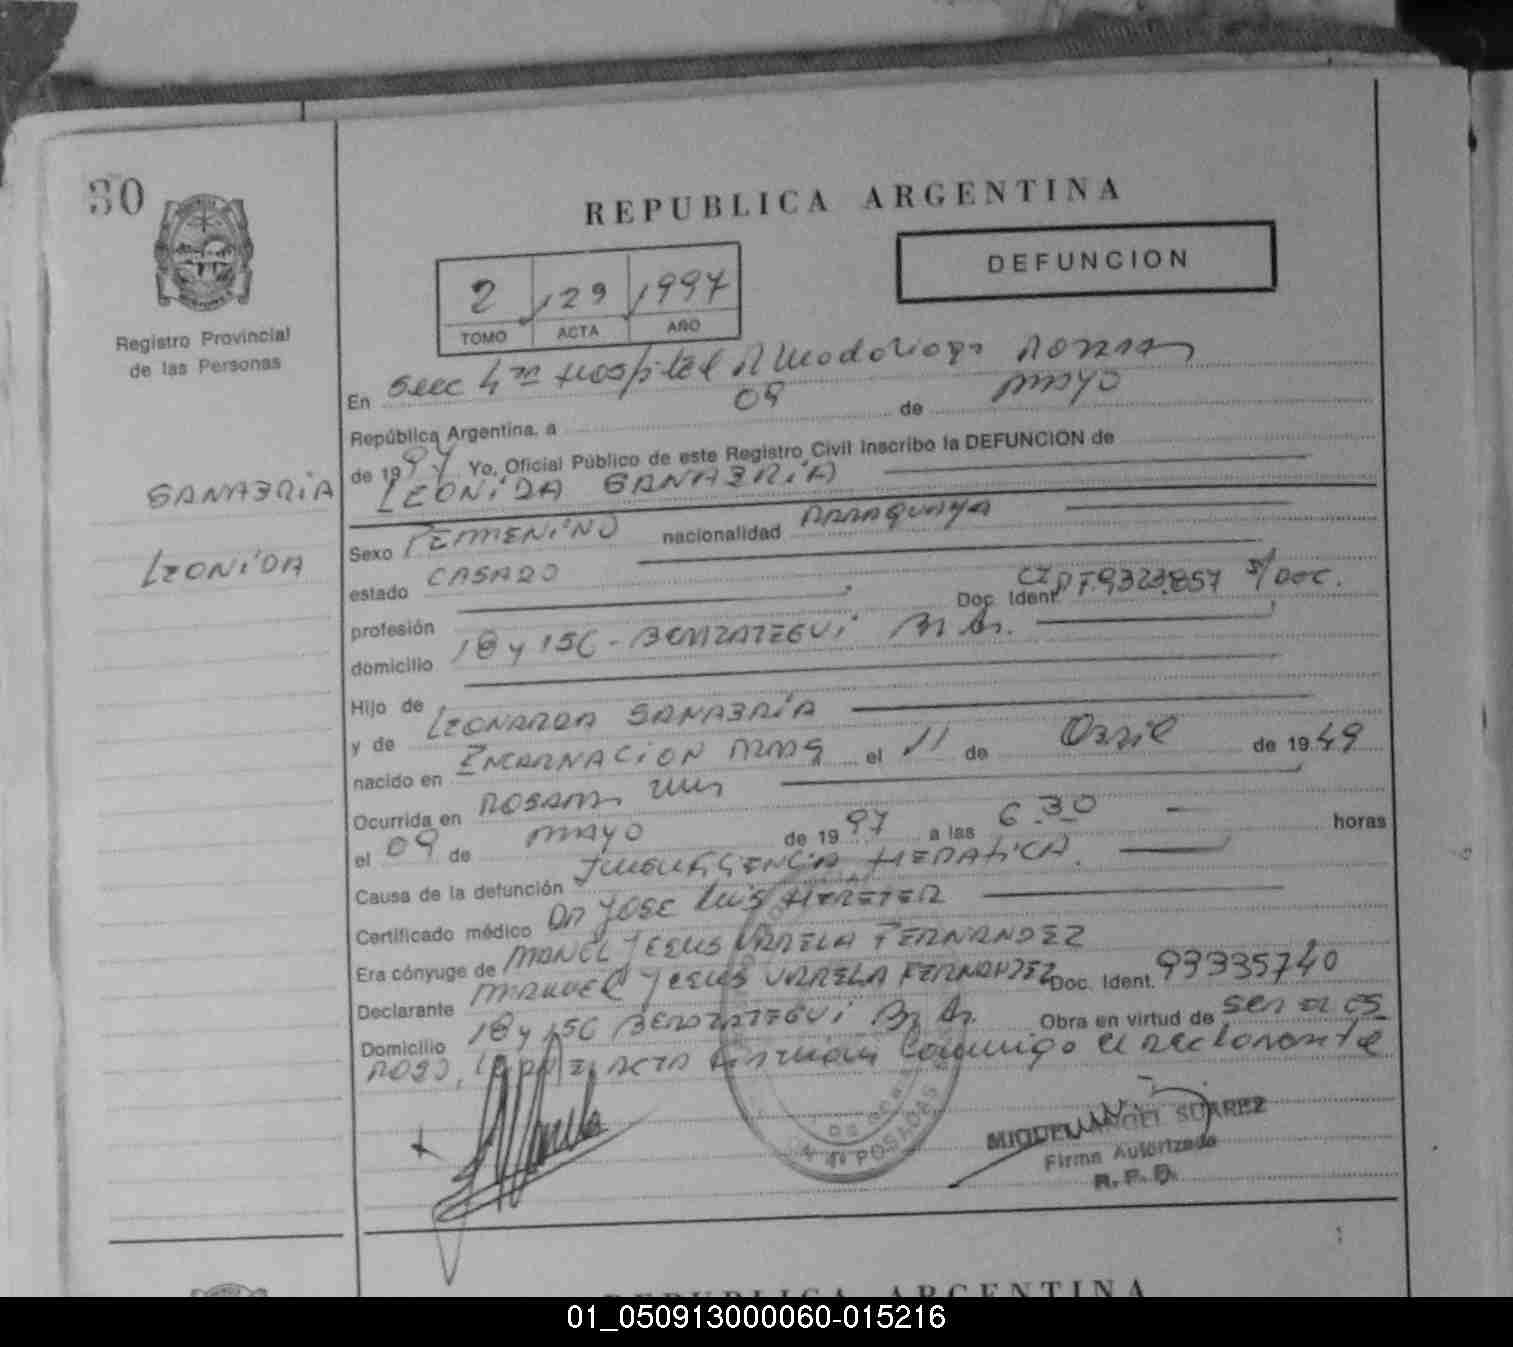 30
REPUBLICA ARGENTINA
DEFUNCION
2 129 1997
TOMO ACTA AÑO
Registro Provincial
de las Personas
SANABRIA
LEONIDA
En Secc 4ta Hospital R Madariaga
República Argentina, a 09 de mayo
de 1997 Yo, Oficial Público de este Registro Civil Inscribo la DEFUNCION de
LEONIDA SANABRIA
Sexo FEMENINO nacionalidad PARAGUAYA
estado CASADO
profesión Doc. Ident. S/DOC.
domicilio 18 y 156 - BERAZATEGUI Bs As.
Hijo de
y de LEONARDA SANABRIA
nacido en ENCARNACION el 11 de ABRIL de 1949
Ocurrida en
el 09 de mayo de 1997 a las 6.30 horas
Causa de la defunción INSUFICIENCIA HEPATICA.
Certificado médico DR JOSE LUIS HERETER
Era cónyuge de MANUEL JESUS VARELA FERNANDEZ
Declarante MANUEL JESUS VARELA FERNANDEZ Doc. Ident. 93335740
Domicilio 18 y 156 BERAZATEGUI Bs As. Obra en virtud de ser el es
poso, ACTA conmigo el declarante
Nº 4º POSADAS
MIGUEL ANGEL SUAREZ
Firma Autorizada
R. P. P.
REPUBLICA ARGENTINA
01_050913000060-015216